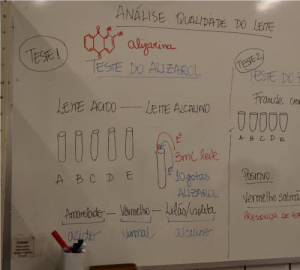 ANÁLISE QUALIDADE DO LEITE
TESTE 1
alizarina
TESTE DO ALIZAROL
LEITE ÁCIDO — LEITE ALCALINO
1º
3ml leite
10 gotas
ALIZAROL
A B C D E
Amarelado - Vermelho - Lilás/violeta
ácido normal alcalino
TESTE 2
TESTE DO
Fraude
A B C D E
POSITIVO
Vermelho
PRESENÇA DE